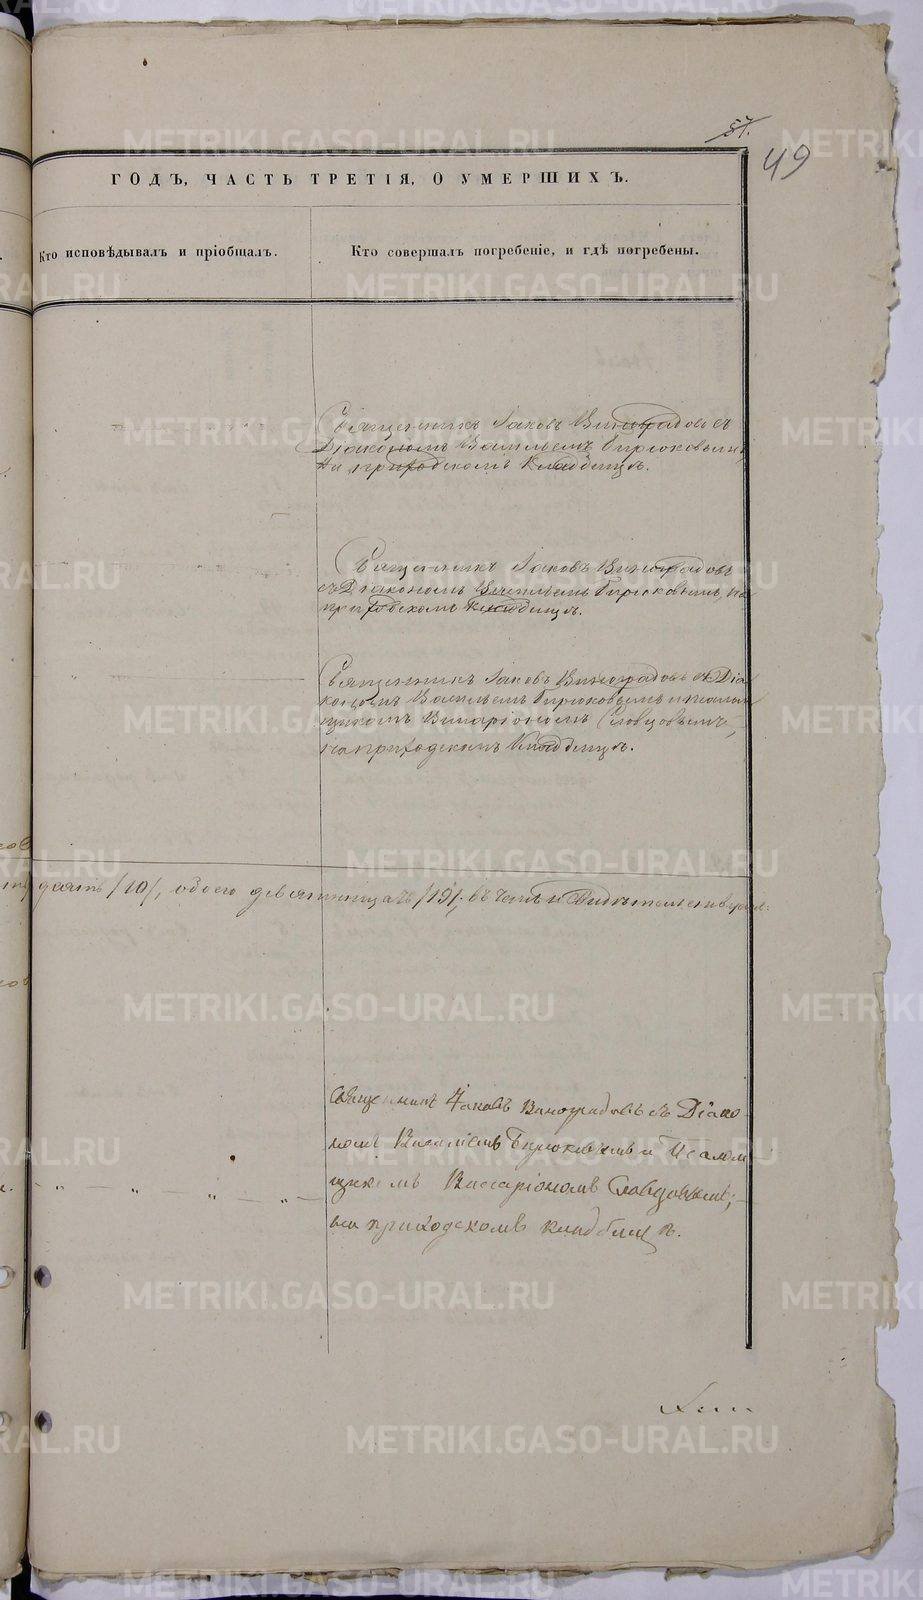 57.
49
ГОДЪ, ЧАСТЬ ТРЕТІЯ, О УМЕРШИХЪ.
Кто исповѣдывалъ и пріобщалъ.
Кто совершалъ погребеніе, и гдѣ погребены.
Священникъ Іаковъ Виноградовъ съ
Діакономъ Васильемъ Бирюковымъ,
на приходскомъ кладбищѣ.
Священникъ Іаковъ Виноградовъ
съ Діакономъ Васильемъ Бирюковымъ, на
приходскомъ кладбищѣ.
Священникъ Іаковъ Виноградовъ съ Діа
кономъ Васильемъ Бирюковымъ и псалом
щикомъ Виссаріономъ Словцовымъ,
на приходскомъ кладбищѣ.
десять /10/, обоего девятнадцать /19/.
Священникъ Іаковъ Виноградовъ съ Діако
номъ Василіемъ Бирюковымъ и Псалом
щикомъ Виссаріономъ Словцовымъ;
на приходскомъ кладбищѣ.
METRIKI.GASO-URAL.RU